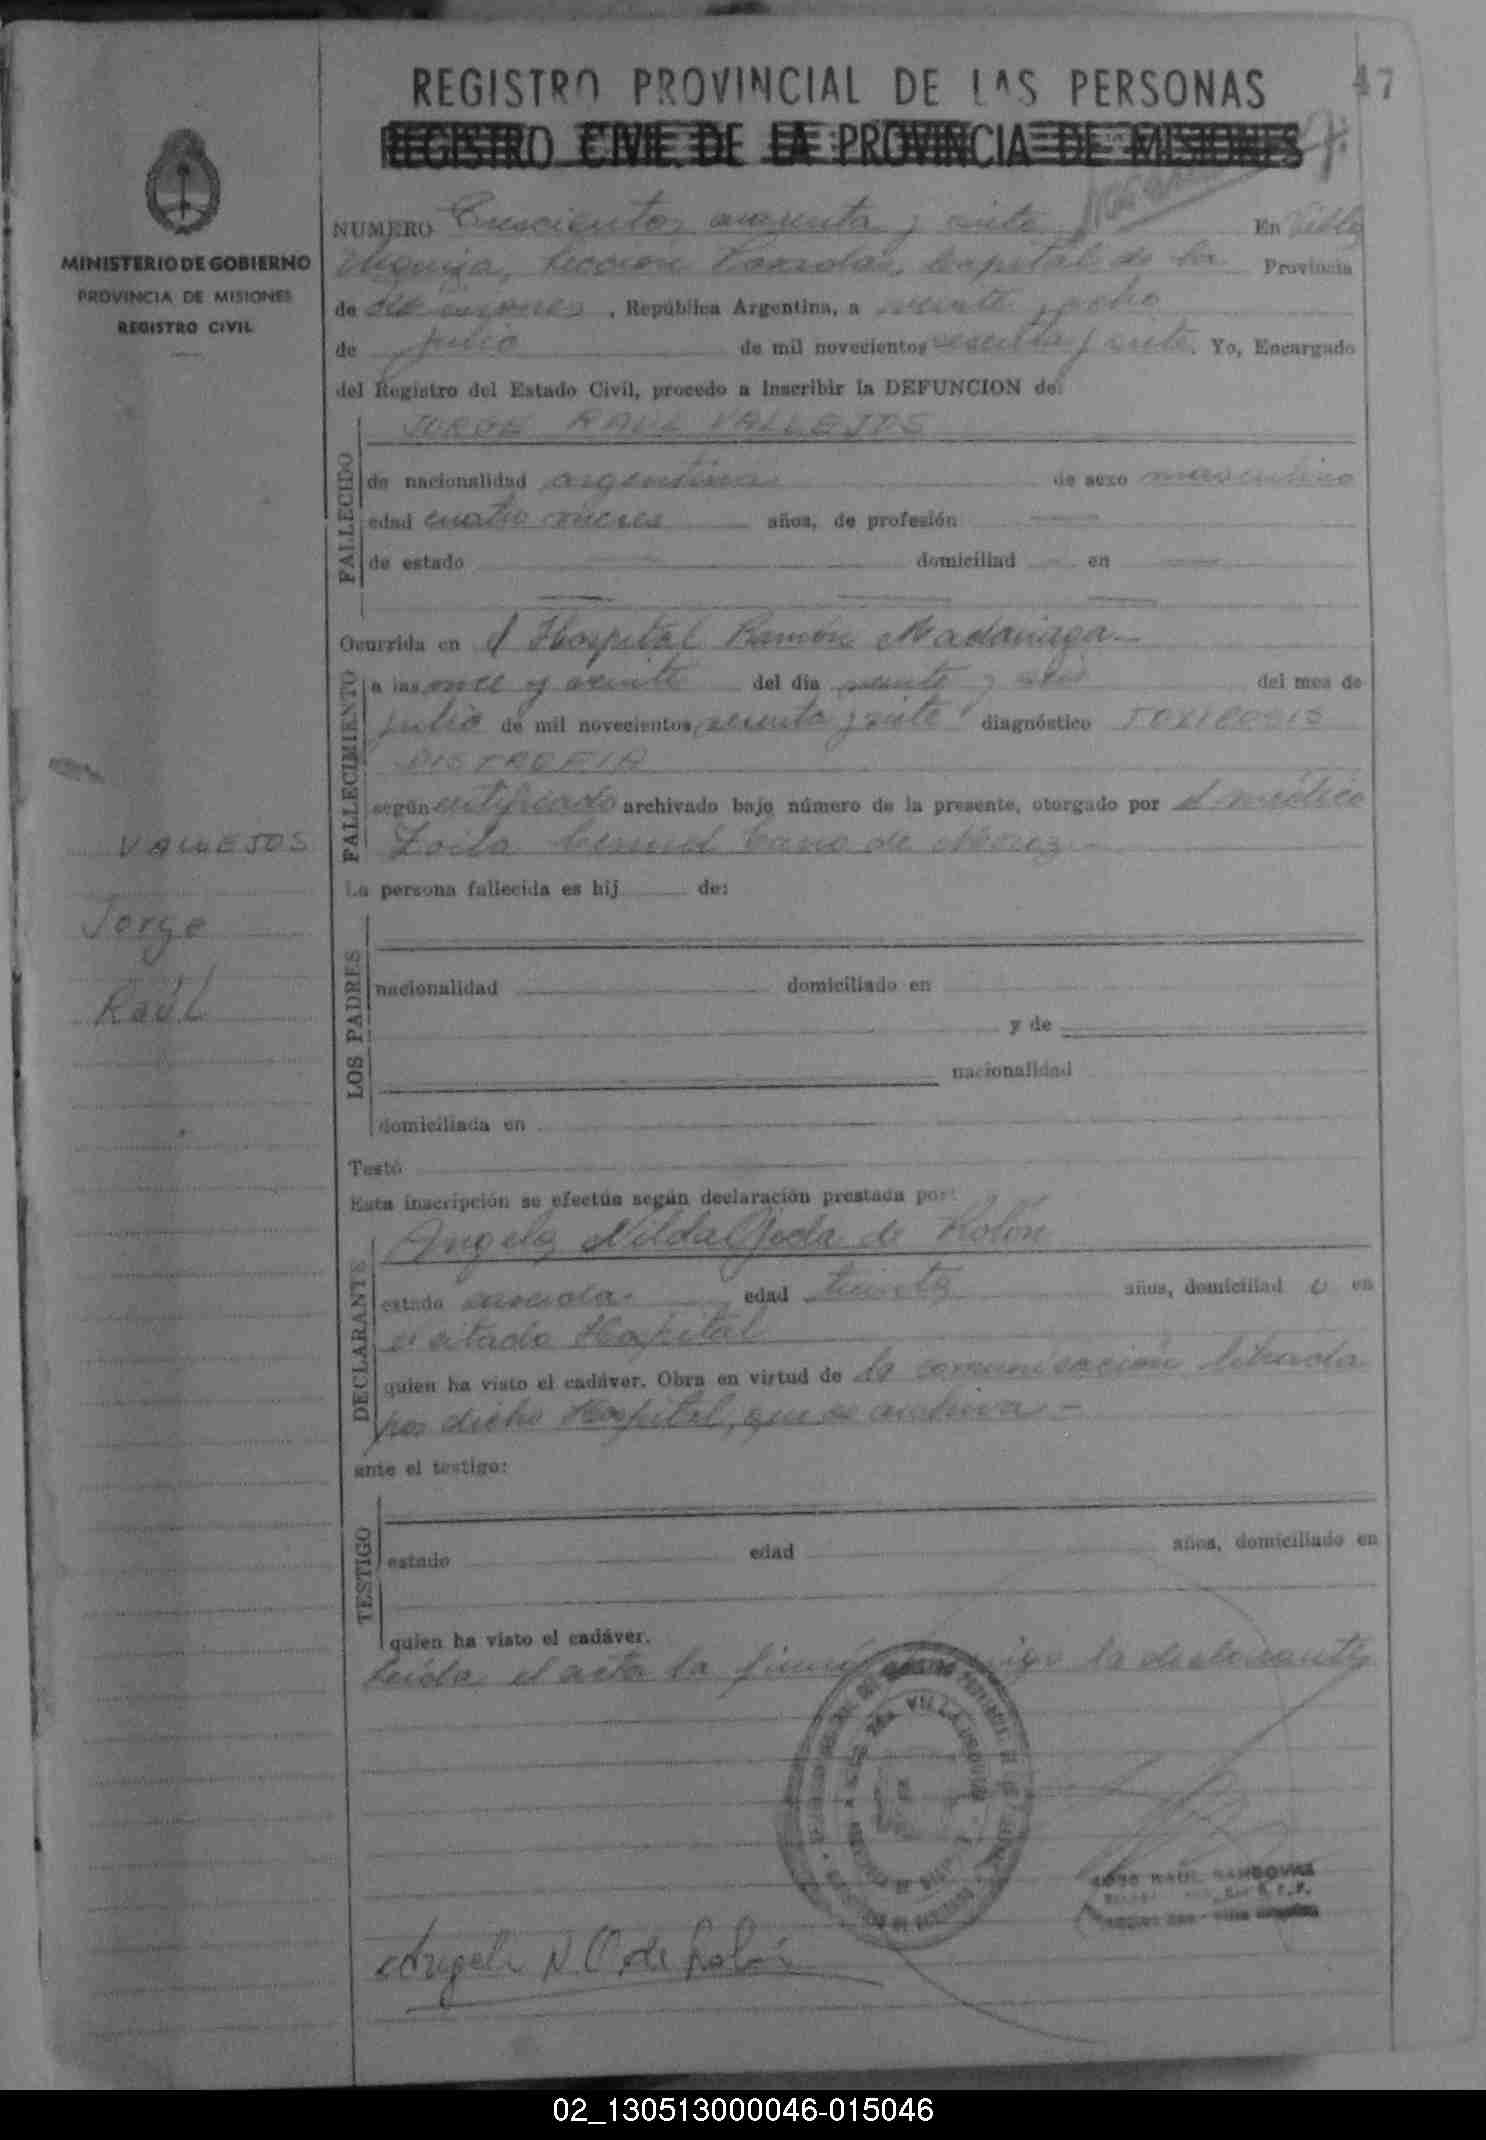 47
REGISTRO PROVINCIAL DE LAS PERSONAS
REGISTRO CIVIL DE LA PROVINCIA DE MISIONES
MINISTERIO DE GOBIERNO
PROVINCIA DE MISIONES
REGISTRO CIVIL
NUMERO Trescientos cuarenta y siete En Villa
Urquiza, Sección Posadas, Capital de la Provincia
de Misiones, República Argentina, a veinte y ocho
de julio de mil novecientos sesenta y siete. Yo, Encargado
del Registro del Estado Civil, procedo a inscribir la DEFUNCION de:
JORGE RAUL VALLEJOS
FALLECIDO
de nacionalidad argentina de sexo masculino
edad cuatro meses años, de profesión
de estado domiciliad en
Ocurrida en el Hospital Ramón Madariaga
FALLECIMIENTO
a las once y veinte del día veinte y seis del mes de
julio de mil novecientos sesenta y siete diagnóstico TOXICOSIS
DISTROFIA
según certificado archivado bajo número de la presente, otorgado por el médico
Zoila de
VALLEJOS
Jorge
Raúl
La persona fallecida es hij de:
LOS PADRES
nacionalidad domiciliado en
y de
nacionalidad
domiciliada en
Testó
Esta inscripción se efectúa según declaración prestada por:
Angela Nilda Ojeda de Rolón
DECLARANTE
estado casada edad treinta años, domiciliad o en
el citado Hospital
quien ha visto el cadáver. Obra en virtud de la comunicación librada
por dicho Hospital, que se archiva.-
ante el testigo:
TESTIGO
estado edad años, domiciliado en
quien ha visto el cadáver.
Leída el acta la la declarante
Angela N. O. de Rolón
02_130513000046-015046